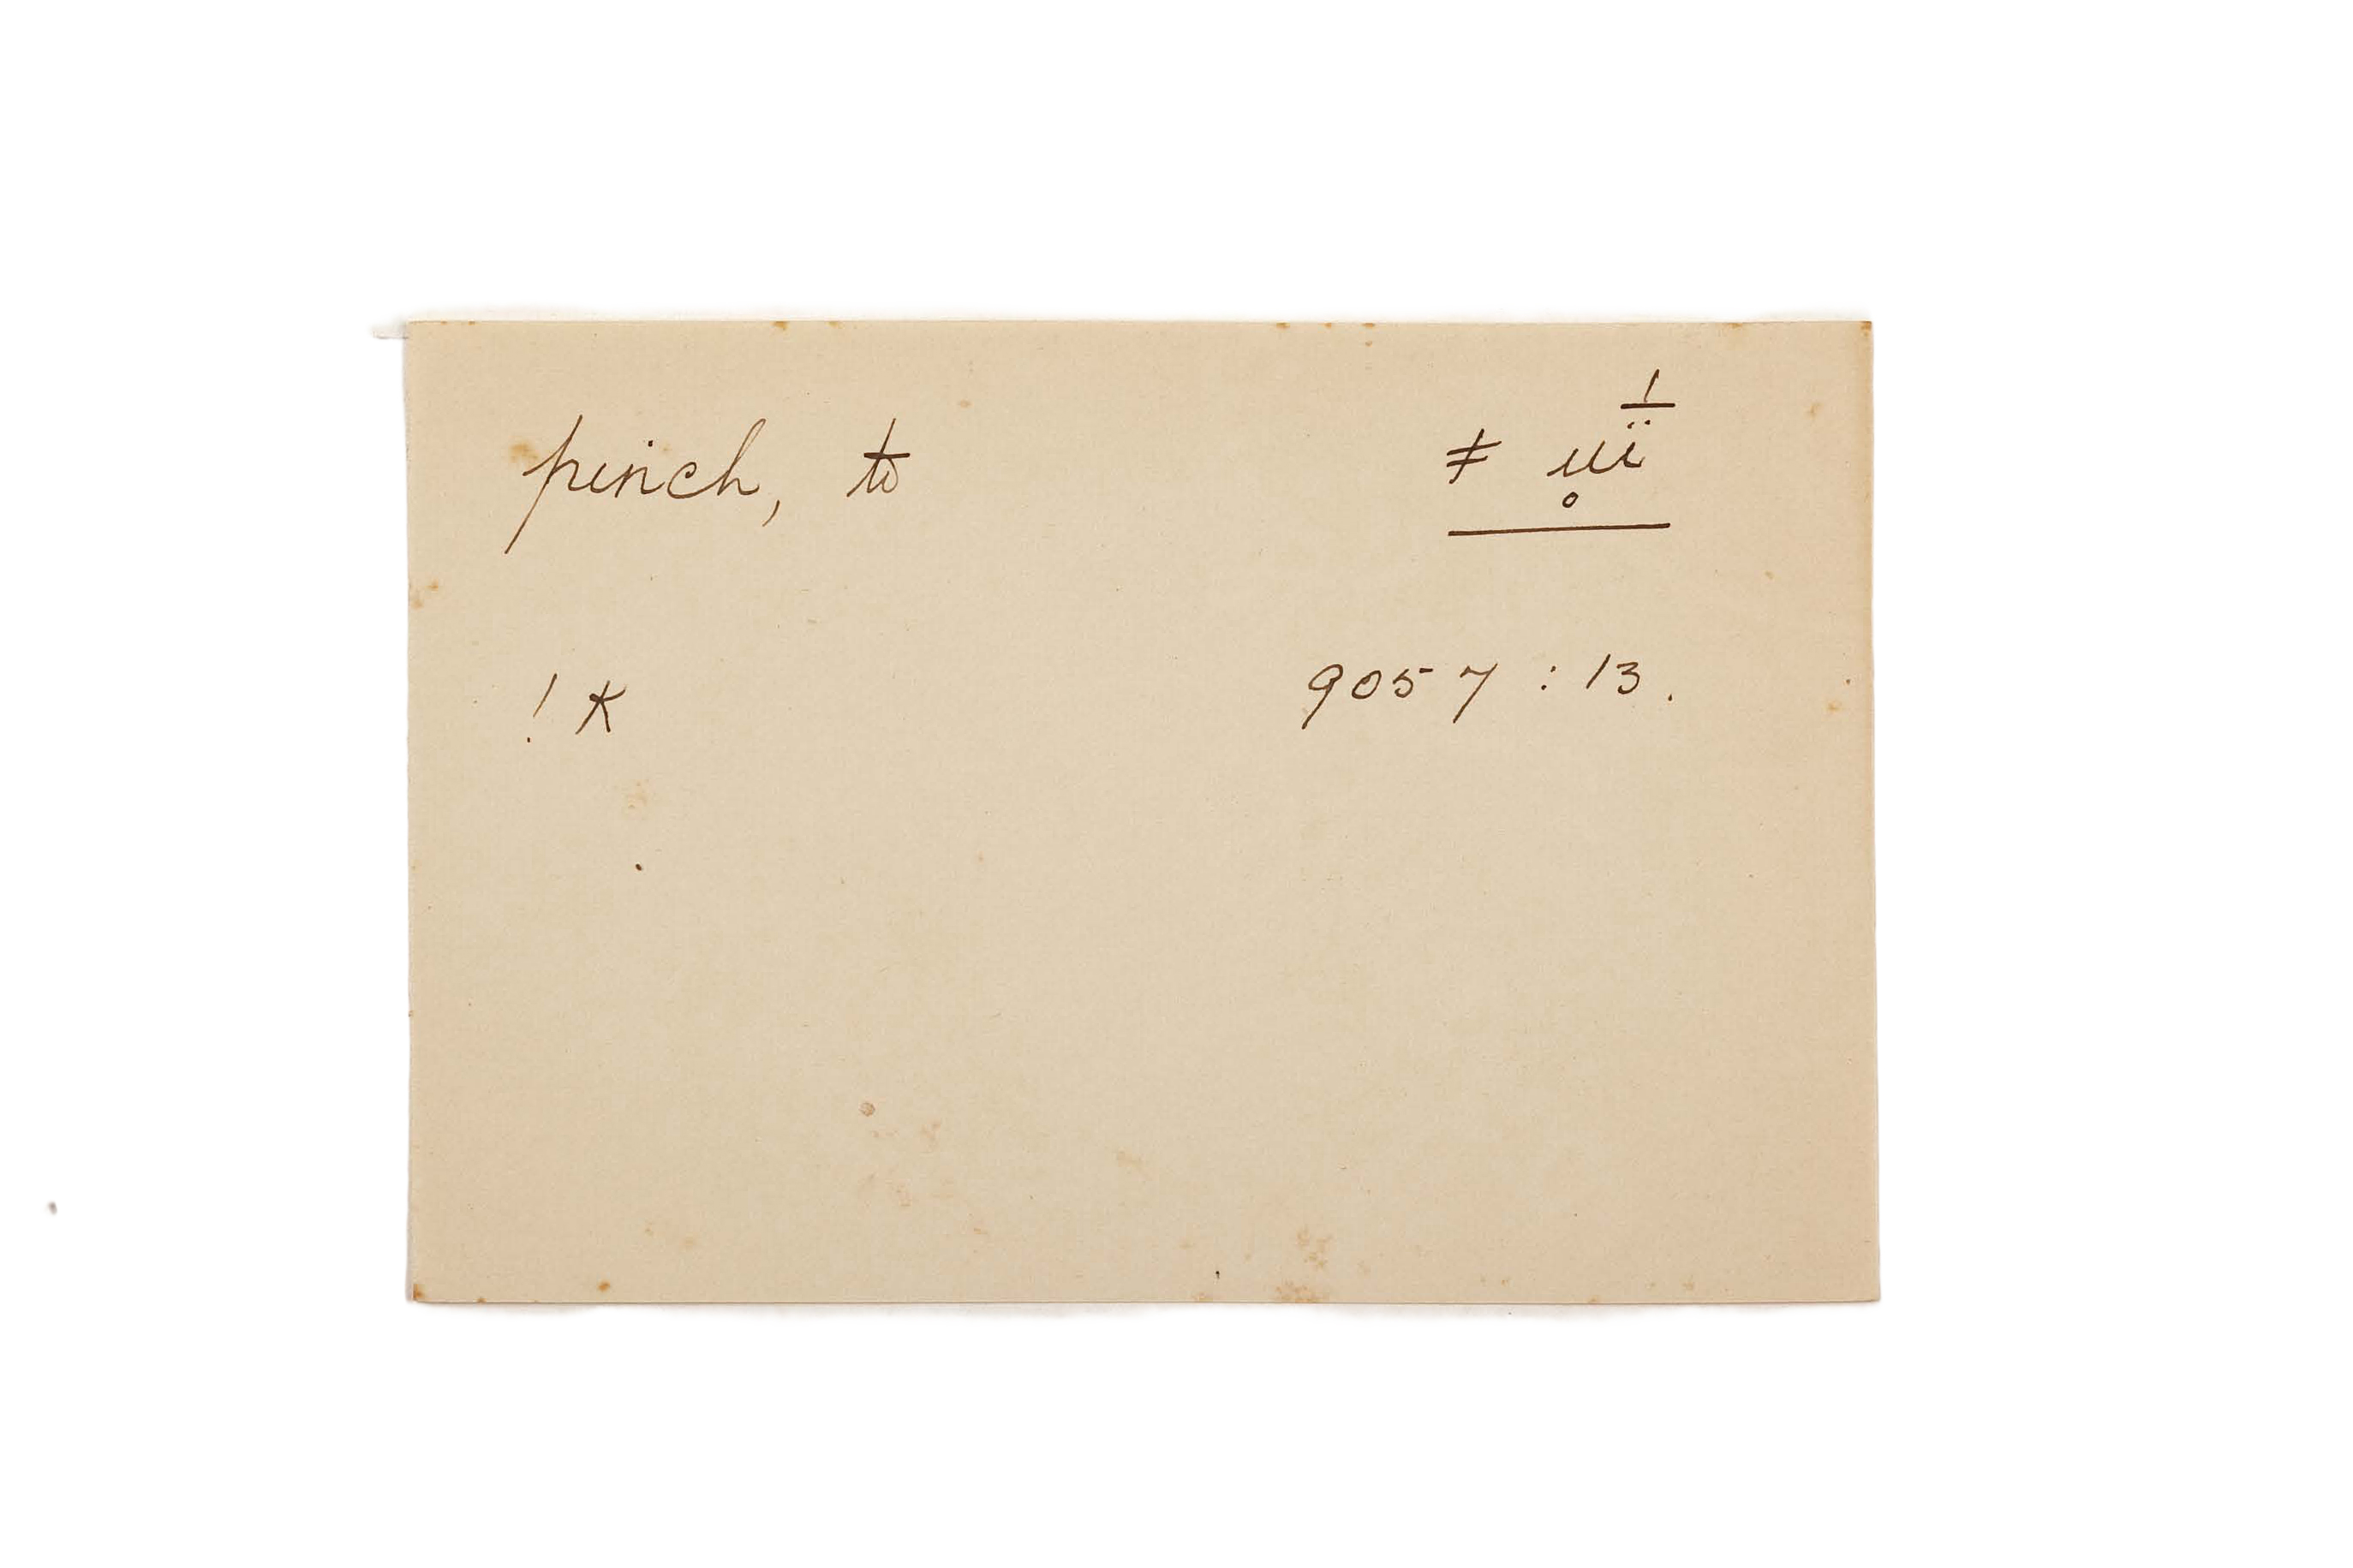 pinch, to ǂ u̥ḯ̱
! K 9057 : 13.